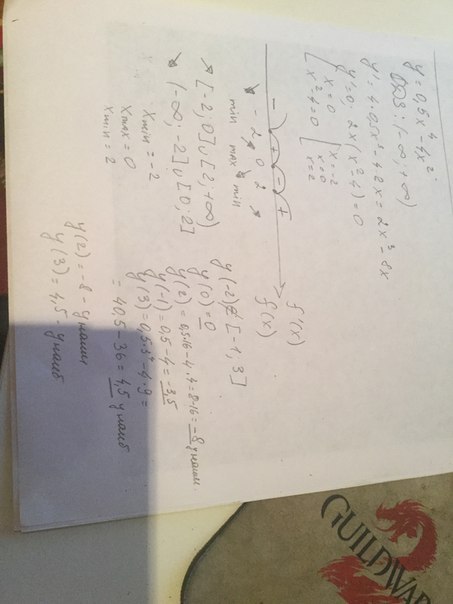 y = 0,5x⁴ - 4x²
ООФ: (-∞; +∞)
y' = 4·0,5x³ - 4·2x = 2x³ - 8x
y' = 0 2x(x² - 4) = 0
[ x = 0
x² - 4 = 0
[ x = -2
x = 0
x = 2
- + - + f'(x)
-2 0 2 f(x)
min max min
↗ [-2; 0] ∪ [2; +∞)
↘ (-∞; -2] ∪ [0; 2]
xmin = -2
xmax = 0
xmin = 2
y(-2) ∉ [-1; 3]
y(0) = 0
y(2) = 0,5·16 - 4·4 = 8 - 16 = -8 y наим
y(-1) = 0,5 - 4 = -3,5
y(3) = 0,5·3⁴ - 4·9 =
= 40,5 - 36 = 4,5 y наиб
y(2) = -8 - y наим
y(3) = 4,5 - y наиб
GUILDWAR